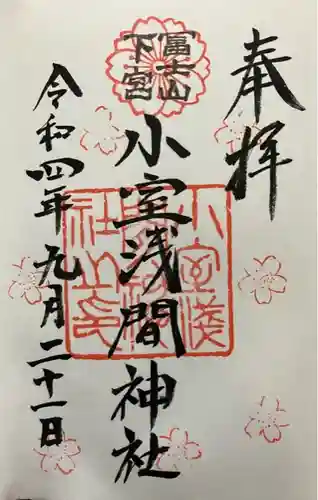 奉拝
冨士山
下宮
小室浅間神社
小室淺
間神
社之印
令和四年九月二十一日